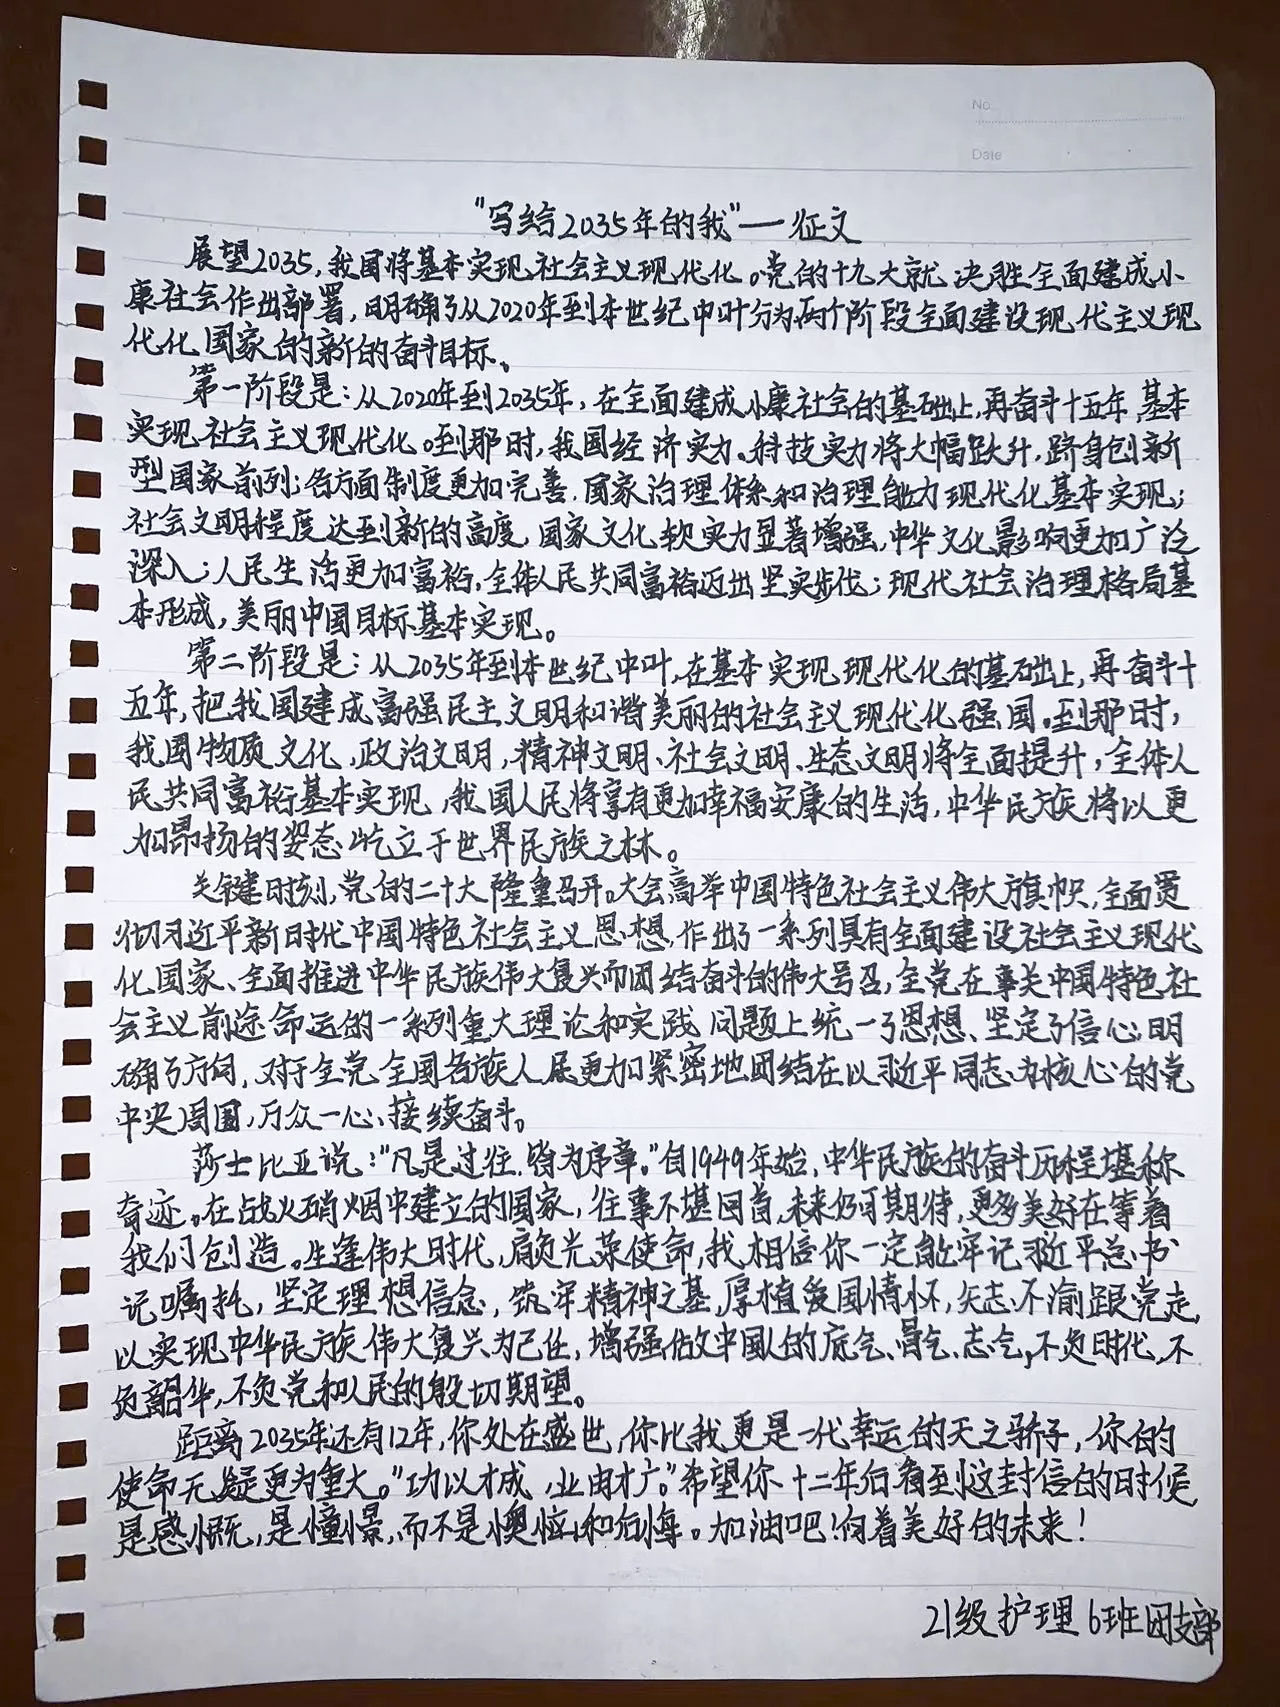 No.
Date
"写给2035年的我"——征文
展望2035,我国将基本实现社会主义现代化。党的十九大就决胜全面建成小
康社会作出部署,明确了从2020年到本世纪中叶分为两个阶段全面建设现代主义现
代化国家的新的奋斗目标。
第一阶段是:从2020年到2035年,在全面建成小康社会的基础上,再奋斗十五年,基本
实现社会主义现代化。到那时,我国经济实力、科技实力将大幅跃升,跻身创新
型国家前列;各方面制度更加完善,国家治理体系和治理能力现代化基本实现;
社会文明程度达到新的高度,国家文化软实力显著增强,中华文化影响更加广泛
深入;人民生活更加富裕,全体人民共同富裕迈出坚实步伐;现代社会治理格局基
本形成,美丽中国目标基本实现。
第二阶段是:从2035年到本世纪中叶,在基本实现现代化的基础上,再奋斗十
五年,把我国建成富强民主文明和谐美丽的社会主义现代化强国。到那时,
我国物质文化,政治文明,精神文明、社会文明、生态文明将全面提升,全体人
民共同富裕基本实现,我国人民将享有更加幸福安康的生活,中华民族将以更
加昂扬的姿态屹立于世界民族之林。
关键时刻,党的二十大隆重召开。大会高举中国特色社会主义伟大旗帜,全面贯
彻习近平新时代中国特色社会主义思想,作出了一系列具有全面建设社会主义现代
化国家、全面推进中华民族伟大复兴而团结奋斗的伟大号召,全党在事关中国特色社
会主义前途命运的一系列重大理论和实践问题上统一了思想、坚定了信心,明
确了方向,对于全党全国各族人民更加紧密地团结在以习近平同志为核心的党
中央周围,万众一心、接续奋斗。
莎士比亚说:"凡是过往,皆为序章。"自1949年始,中华民族的奋斗历程堪称
奇迹。在战火硝烟中建立的国家,往事不堪回首,未来仍可期待,更多美好在等着
我们创造。生逢伟大时代,肩负光荣使命,我相信你一定能牢记习近平总书
记嘱托,坚定理想信念,筑牢精神之基,厚植爱国情怀,矢志不渝跟党走,
以实现中华民族伟大复兴为己任,增强做中国人的底气、骨气、志气,不负时代,不
负韶华,不负党和人民的殷切期望。
距离2035年还有12年,你处在盛世,你比我更是一代幸运的天之骄子,你的
使命无疑更为重大。"功以才成,业由才广。"希望你十二年后看到这封信的时候,
是感慨,是憧憬,而不是懊恼和后悔。加油吧!向着美好的未来!
21级护理6班团支部